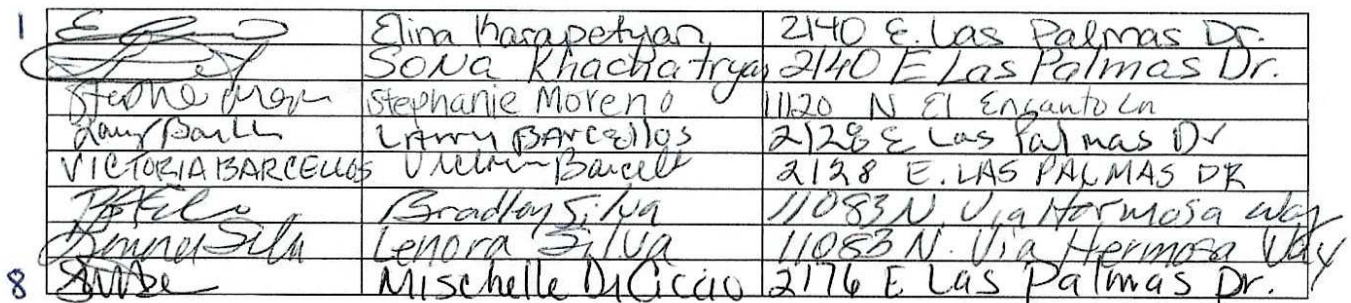 1 Elina Karapetyan 2140 E. Las Palmas Dr.
Sona Khachatryan 2140 E Las Palmas Dr.
Stephanie Moreno 11120 N El Encanto Ln
Larry Barcellos 2128 E Las Palmas Dr
VICTORIA BARCELLOS Victoria Barcell 2128 E. LAS PALMAS DR
Bradley Silva 11083 N. Via Hermosa Way
Lenora Silva 11083 N. Via Hermosa Way
8 Mischelle DiCiccio 2176 E Las Palmas Dr.